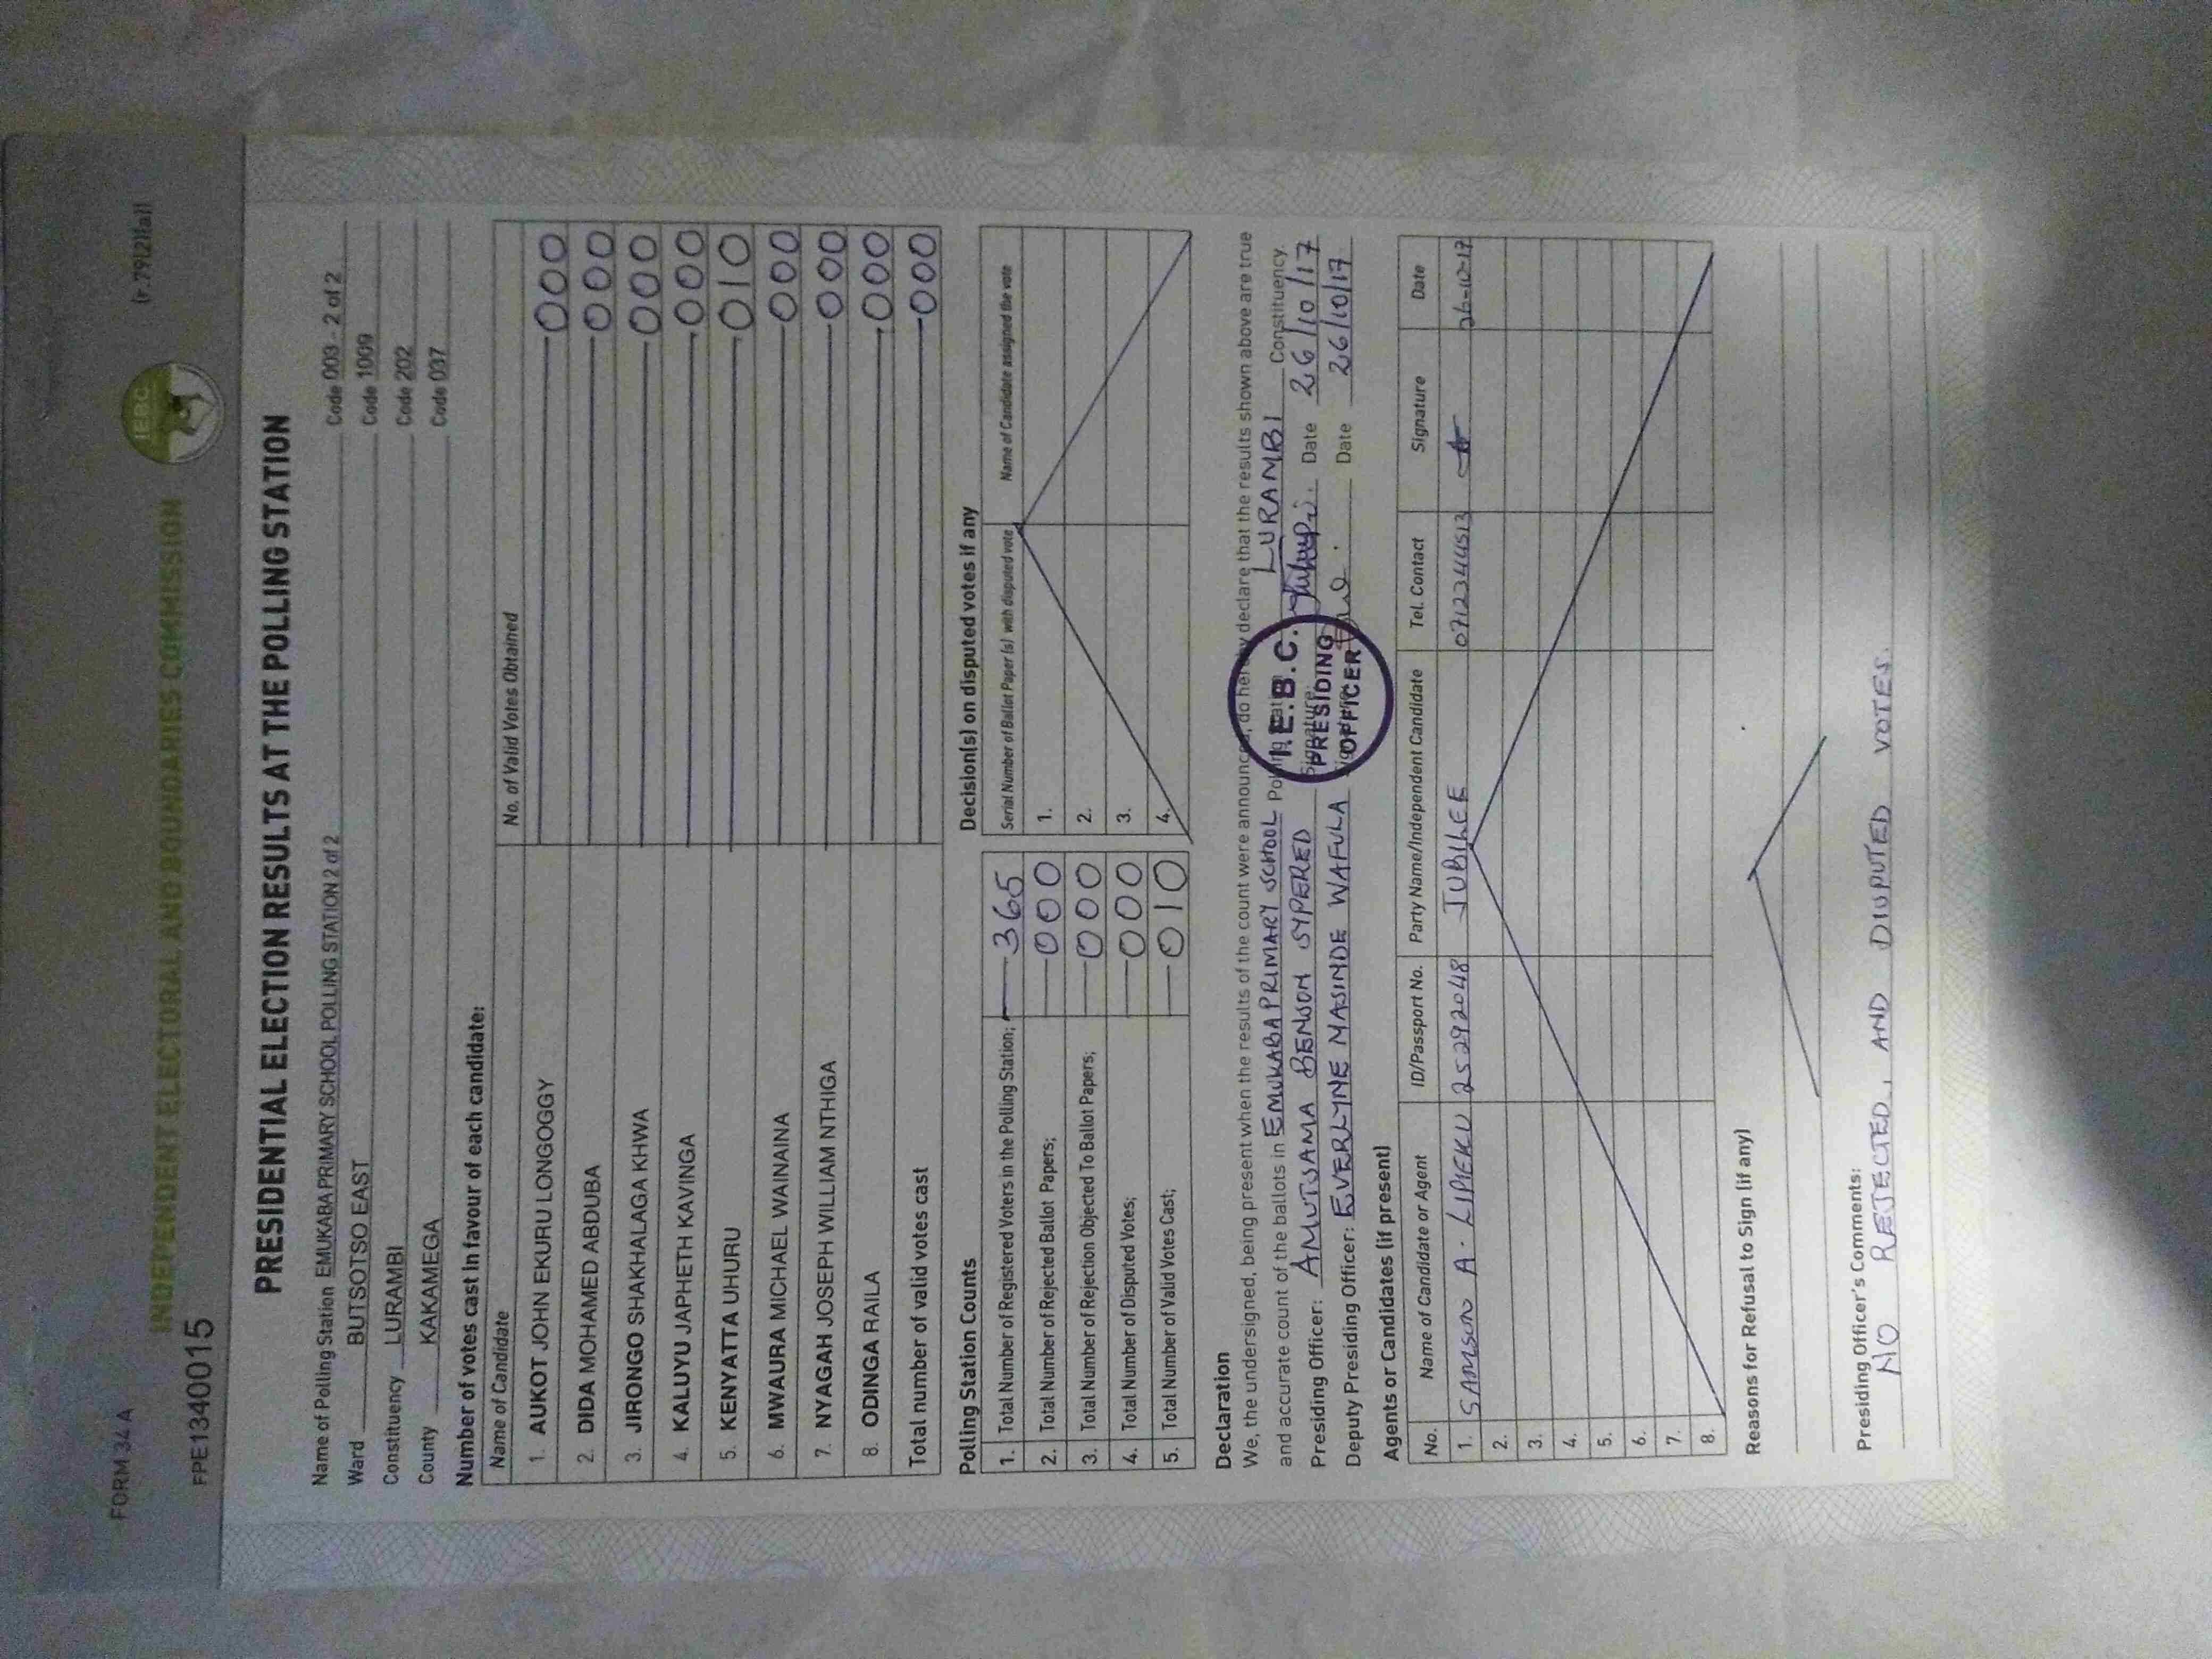 FORM 34 A
(r.79(2)(a))
INDEPENDENT ELECTORAL AND BOUNDARIES COMMISSION
IEBC
FPE1340015
PRESIDENTIAL ELECTION RESULTS AT THE POLLING STATION
Name of Polling Station EMUKABA PRIMARY SCHOOL POLLING STATION 2 of 2 Code 003 - 2 of 2
Ward BUTSOTSO EAST Code 1009
Constituency LURAMBI Code 202
County KAKAMEGA Code 037
Number of votes cast in favour of each candidate:
Name of Candidate No. of Valid Votes Obtained
1. AUKOT JOHN EKURU LONGOGGY 000
2. DIDA MOHAMED ABDUBA 000
3. JIRONGO SHAKHALAGA KHWA 000
4. KALUYU JAPHETH KAVINGA 000
5. KENYATTA UHURU 010
6. MWAURA MICHAEL WAINAINA 000
7. NYAGAH JOSEPH WILLIAM NTHIGA 000
8. ODINGA RAILA 000
Total number of valid votes cast 000
Polling Station Counts
1. Total Number of Registered Voters in the Polling Station; 365
2. Total Number of Rejected Ballot Papers; 000
3. Total Number of Rejection Objected To Ballot Papers; 000
4. Total Number of Disputed Votes; 000
5. Total Number of Valid Votes Cast; 010
Decision(s) on disputed votes if any
Serial Number of Ballot Paper (s) with disputed vote Name of Candidate assigned the vote
1.
2.
3.
4.
Declaration
We, the undersigned, being present when the results of the count were announced, do hereby declare that the results shown above are true
and accurate count of the ballots in EMUKABA PRIMARY SCHOOL Polling Station LURAMBI Constituency.
Presiding Officer: AMUTSAMA BENSON SYPERED Signature: Date 26/10/17
Deputy Presiding Officer: EVERLYNE MASINDE WAFULA Signature: Date 26/10/17
I.E.B.C.
PRESIDING
OFFICER
Agents or Candidates (if present)
No. Name of Candidate or Agent ID/Passport No. Party Name/Independent Candidate Tel. Contact Signature Date
1. SAMSON A. LIPIEKU 25292048 JUBILEE 0712244513 26-10-17
2.
3.
4.
5.
6.
7.
8.
Reasons for Refusal to Sign (if any)
Presiding Officer's Comments:
NO REJECTED, AND DIUPUTED VOTES.